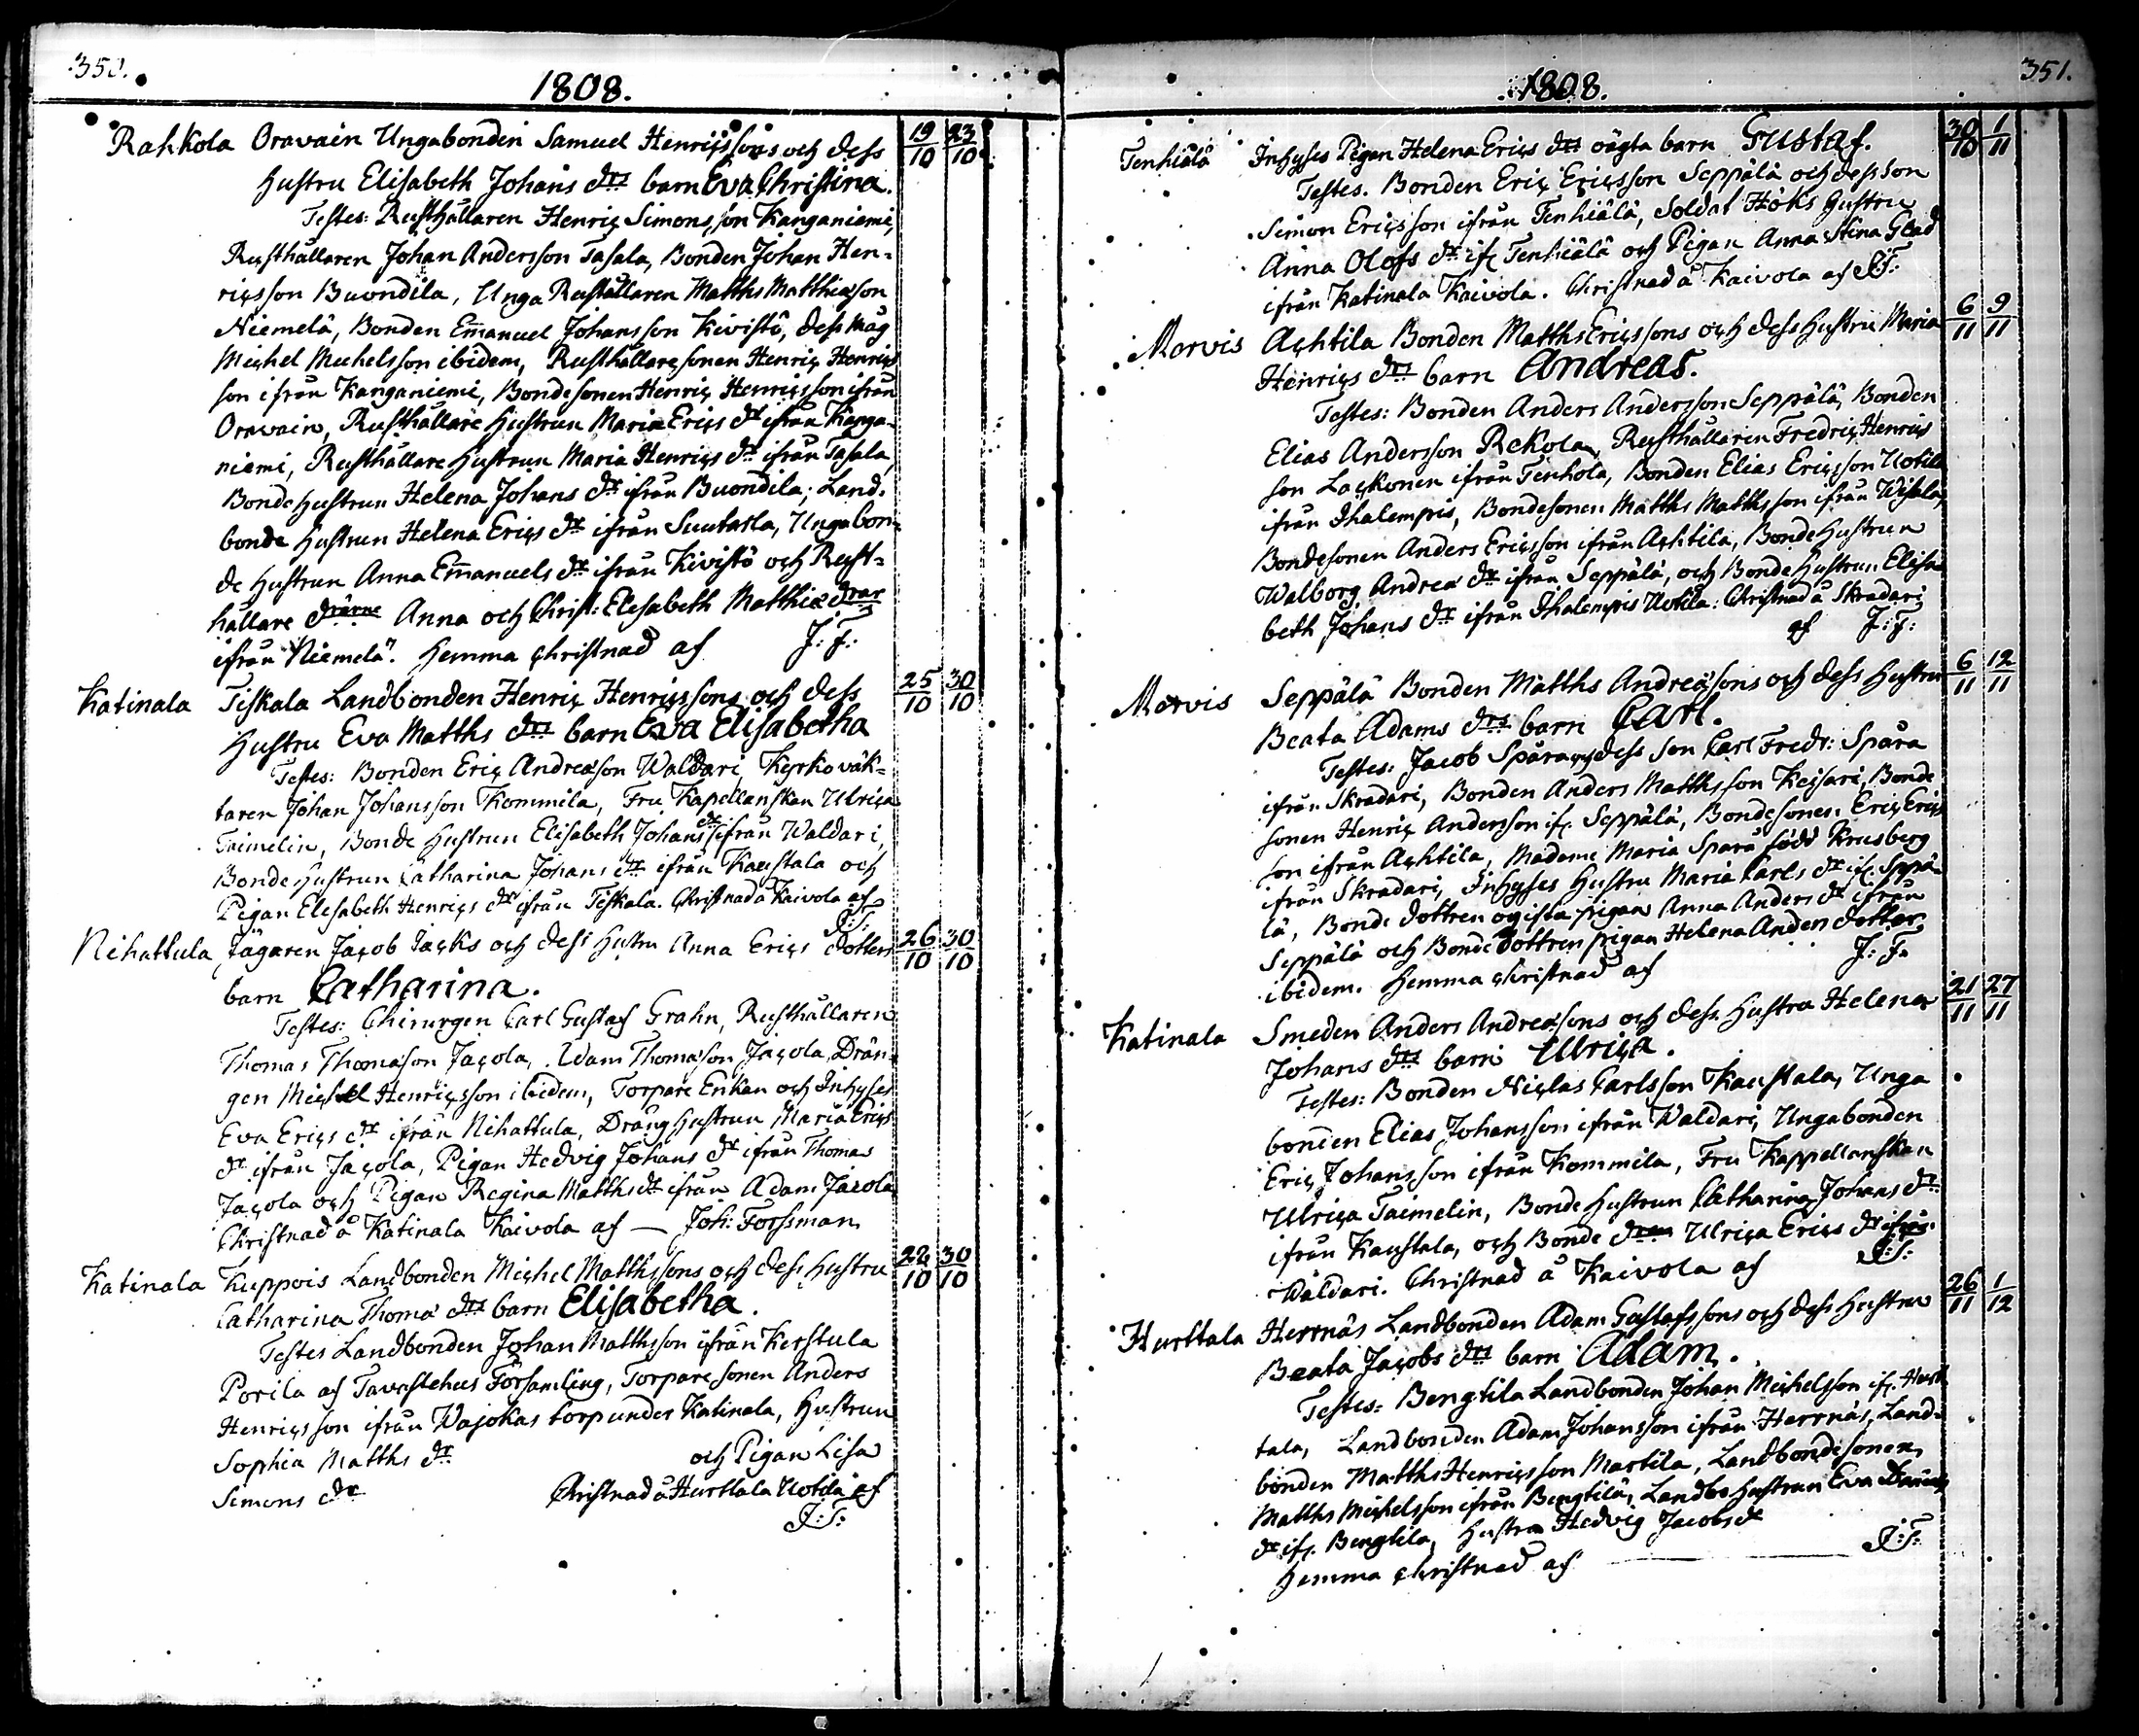 350.
1808.
Rahkola Oravain Ungabonden Samuel Henricssons och dess 19/10 23/10
Hustru Elisabeth Johans drs barn Eva Christina.
Testes: Rusthållaren Henric Simonsson Kanganiemi,
Rusthållaren Johan Andersson Tasala, Bonden Johan Hen-
ricsson Buondila, Unga Rusthållaren Matths Matthiæson
Niemelä, Bonden Em̄anuel Johansson Kivistö, dess Måg
Michel Michelsson ibidem, Rusthållaresonen Henric Henrics
son ifrån Kanganiemi, Bondesonen Henric Henricsson ifrån
Oravain, Rusthållare Hustrun Maria Erics dr ifrån Kanga-
niemi, Rusthållare Hustrun Maria Henrics dr ifrån Tasala,
Bonde Hustrun Helena Johans dr ifrån Buondila, Land-
bonde Hustrun Helena Erics dr ifrån Suutarla, Ungabon-
de Hustrun Anna Em̄anuels dr ifrån Kivistö och Rust-
hållare drarne Anna och Christ: Elisabeth Matthiæ drar
ifrån Niemelä. Hemma christnad af J: F:
Katinala Tiskala Landbonden Henric Henricssons och dess 25/10 30/10
Hustru Eva Matths drs barn Eva Elisabetha
Testes: Bonden Eric Andreæson Waldari, Kyrkoväk-
taren Johan Johansson Kommila, Fru Kapellanskan Ulrica
Taimelin, Bonde Hustrun Elisabeth Johans dr ifrån Waldari,
Bonde Hustrun Catharina Johans dr ifrån Kaustala och
Pigan Elisabeth Henrics dr ifrån Tiskala. Christnad å Kaivola af
J: F:
Nihattula Jägaren Jacob Jacks och dess Hustru Anna Erics dotters 26/10 30/10
barn Catharina.
Testes: Chirurgen Carl Gustaf Grahn, Rusthållaren
Thomas Thomason Jacola, Adam Thomason Jacola, Drän-
gen Michel Henricsson ibidem, Torpare Enkan och Inhyses
Eva Erics dr ifrån Nihattula, Dräng Hustrun Maria Erics
dr ifrån Jacola, Pigan Hedvig Johans dr ifrån Thomas
Jacola och Pigan Regina Matths dr ifrån Adam Jacola
Christnad å Katinala Kaivola af — Joh: Forssman
Katinala Kuppois Landbonden Michel Matthssons och dess Hustru 22/10 30/10
Catharina Thomæ drs barn Elisabetha.
Testes Landbonden Johan Matthsson ifrån Kerstula
Porila af Tavastehus Församling, Torparesonen Anders
Henricsson ifrån Wajokas torp under Katinala, Hustrun
Sophia Matths dr och Pigan Lisa
Simons dr Christnad å Hurttala Uotila af
J: F:
351.
1808.
Tenhiälä Inhyses Pigan Helena Erics drs oägta barn Gustaf. 30/10 1/11
Testes. Bonden Eric Ericsson Seppälä och dess son
Simon Ericsson ifrån Tenhiälä, Soldat Höks Hustru
Anna Olofs dr if. Tenhiälä och Pigan Anna Stina Glad
ifrån Katinala Kaivola. Christnad å Kaivola af J F:
Morvis Achtila Bonden Matths Ericssons och dess Hustru Maria 6/11 9/11
Henrics drs barn Andreas.
Testes: Bonden Anders Andersson Seppälä, Bonden
Elias Andersson Rekola, Rusthållaren Fredric Henrics
son Lackonen ifrån Tenhola, Bonden Elias Ericsson Uotila
ifrån Ihalempis, Bondesonen Matths Matthsson ifrån Wisala,
Bondesonen Anders Ericsson ifrån Achtila, Bonde Hustrun
Walborg Andreæ dr ifrån Seppälä, och Bonde Hustrun Elisa-
beth Johans dr ifrån Ihalempis Uotila: Christnad å Skradari
af J: F:
Morvis Seppälä Bonden Matths Andreæsons och dess Hustru 6/11 12/11
Beata Adams drs barn Carl.
Testes: Jacob Spåra och dess Son Carl Fredr: Spåra
ifrån Skradari, Bonden Anders Matthsson Keisari, Bonde
sonen Henric Andersson if. Seppälä, Bondesonen Eric Erics
son ifrån Achtila, Madame Maria Spåra född Krusberg
ifrån Skradari, Inhyses Hustru Maria Carls dr if. Seppä-
lä, Bonde dottren ogifta pigan Anna Anders dr ifrån
Seppälä och Bonde dottren pigan Helena Anders dotter
ibidem. Hemma christnad af J: F:
Katinala Smeden Anders Andreæsons och dess Hustru Helena 21/11 27/11
Johans drs barn Ulrica.
Testes: Bonden Niclas Carlsson Kaustala, Unga
bonden Elias Johansson ifrån Waldari, Ungabonden
Eric Johansson ifrån Kommila, Fru Kappellanskan
Ulrica Taimelin, Bonde Hustrun Catharina Johans dr
ifrån Kaustala, och Bonde Ulrica Erics dr ifrån
Waldari. Christnad å Kaivola af J: F:
Hurttala Herrnäs Landbonden Adam Gustafssons och dess Hustru 26/11 1/12
Beata Jacobs drs barn Adam.
Testes: Bengtila Landbonden Johan Michelsson if. Hurt
tala, Landbonden Adam Johansson ifrån Herrnäs, Land-
bonden Matths Henricsson Martila, Landbondesonen
Matths Michelsson ifrån Bengtilä, Landbo Hustrun Eva
dr if. Bengtila, Hustru Hedvig Jacobs dr
Hemma christnad af — J: F: